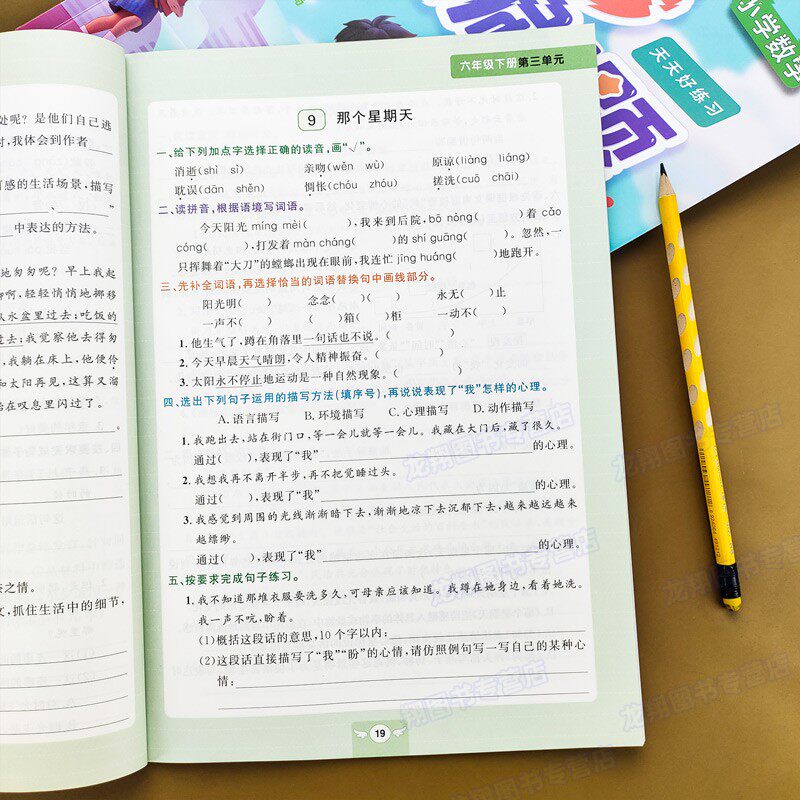 处呢？是他们自己逃
时，我体会到作者
情感的生活场景，描写
、 ”
中表达的方法。
地匆匆呢？早上我起
脚啊，轻轻悄悄地挪移
从水盆里过去；吃饭的
过去；我觉察他去得匆
，我躺在床上，他便伶
和太阳再见，这算又溜
始在叹息里闪过了。
亲之情。
文，抓住生活中的细节，
小学数学
天天好练习
六年级下册 第三单元
9 那个星期天
一、给下列加点字选择正确的读音，画“√”。
消逝(shì sì) 亲吻(wěn wù) 原谅(liàng liáng)
耽误(dān shěn) 惆怅(chóu zhóu) 搓洗(cuō chāi)
二、读拼音，根据语境写词语。
今天阳光 míng mèi( )，我来到后院，bō nòng( )着 cǎo
cóng( )，打发着 màn cháng( )的 shí guāng( )。忽然，一
只挥舞着“大刀”的螳螂出现在眼前，我连忙 jīng huáng( )地跑开。
三、先补全词语，再选择恰当的词语替换句中画线部分。
阳光明( ) 念念( )( ) 永无( )止
一声不( ) ( )箱( )柜 一动不( )
1. 他生气了，蹲在角落里一句话也不说。( )
2. 今天早晨天气晴朗，令人精神振奋。( )
3. 太阳永不停止地运动是一种自然现象。( )
四、选出下列句子运用的描写方法(填序号)，再说说表现了“我”怎样的心理。
A. 语言描写 B. 环境描写 C. 心理描写 D. 动作描写
1. 我跑出去，站在街门口，等一会儿就等一会儿。我藏在大门后，藏了很久。
通过( )，表现了“我”的心理。
2. 我想我再不离开半步，再不把觉睡过头。
通过( )，表现了“我”的心理。
3. 我感觉到周围的光线渐渐暗下去，渐渐地凉下去沉郁下去，越来越远越来
越缥缈。
通过( )，表现了“我”的心理。
五、按要求完成句子练习。
1. 我不知道那堆衣服要洗多久，可母亲应该知道。我蹲在她身边，看着她洗。
我一声不吭，盼着。
(1)概括这段话的意思，10 个字以内：
(2)这段话直接描写了“我”“盼”的心情，请仿照例句写一写自己的某种心
情：
19
龙翔图书专营店